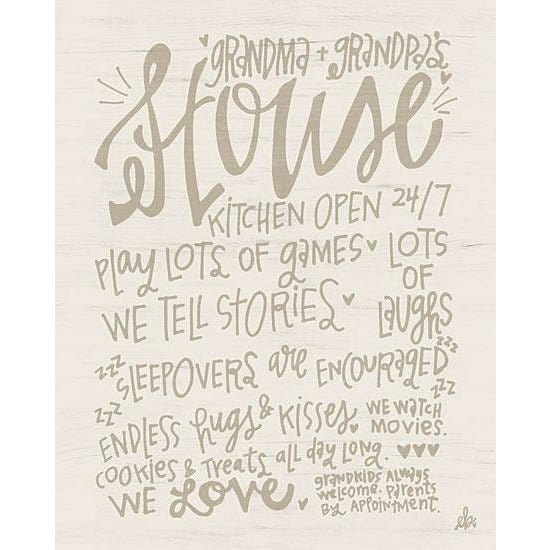 GRANDMA + GRANDPA'S
House
KITCHEN OPEN 24/7
PLAY LOTS OF GAMES
LOTS
OF
LAUGHS
WE TELL STORIES
ZZZ SLEEPOVERS are ENCOURAGED ZZZ
ZZZ ZZZ
ENDLESS hugs & KISSES
WE WATCH
MOVIES.
COOKIES & TREATS all day long.
WE LOVE
GRANDKIDS ALWAYS
WELCOME. PARENTS
BY APPOINTMENT.